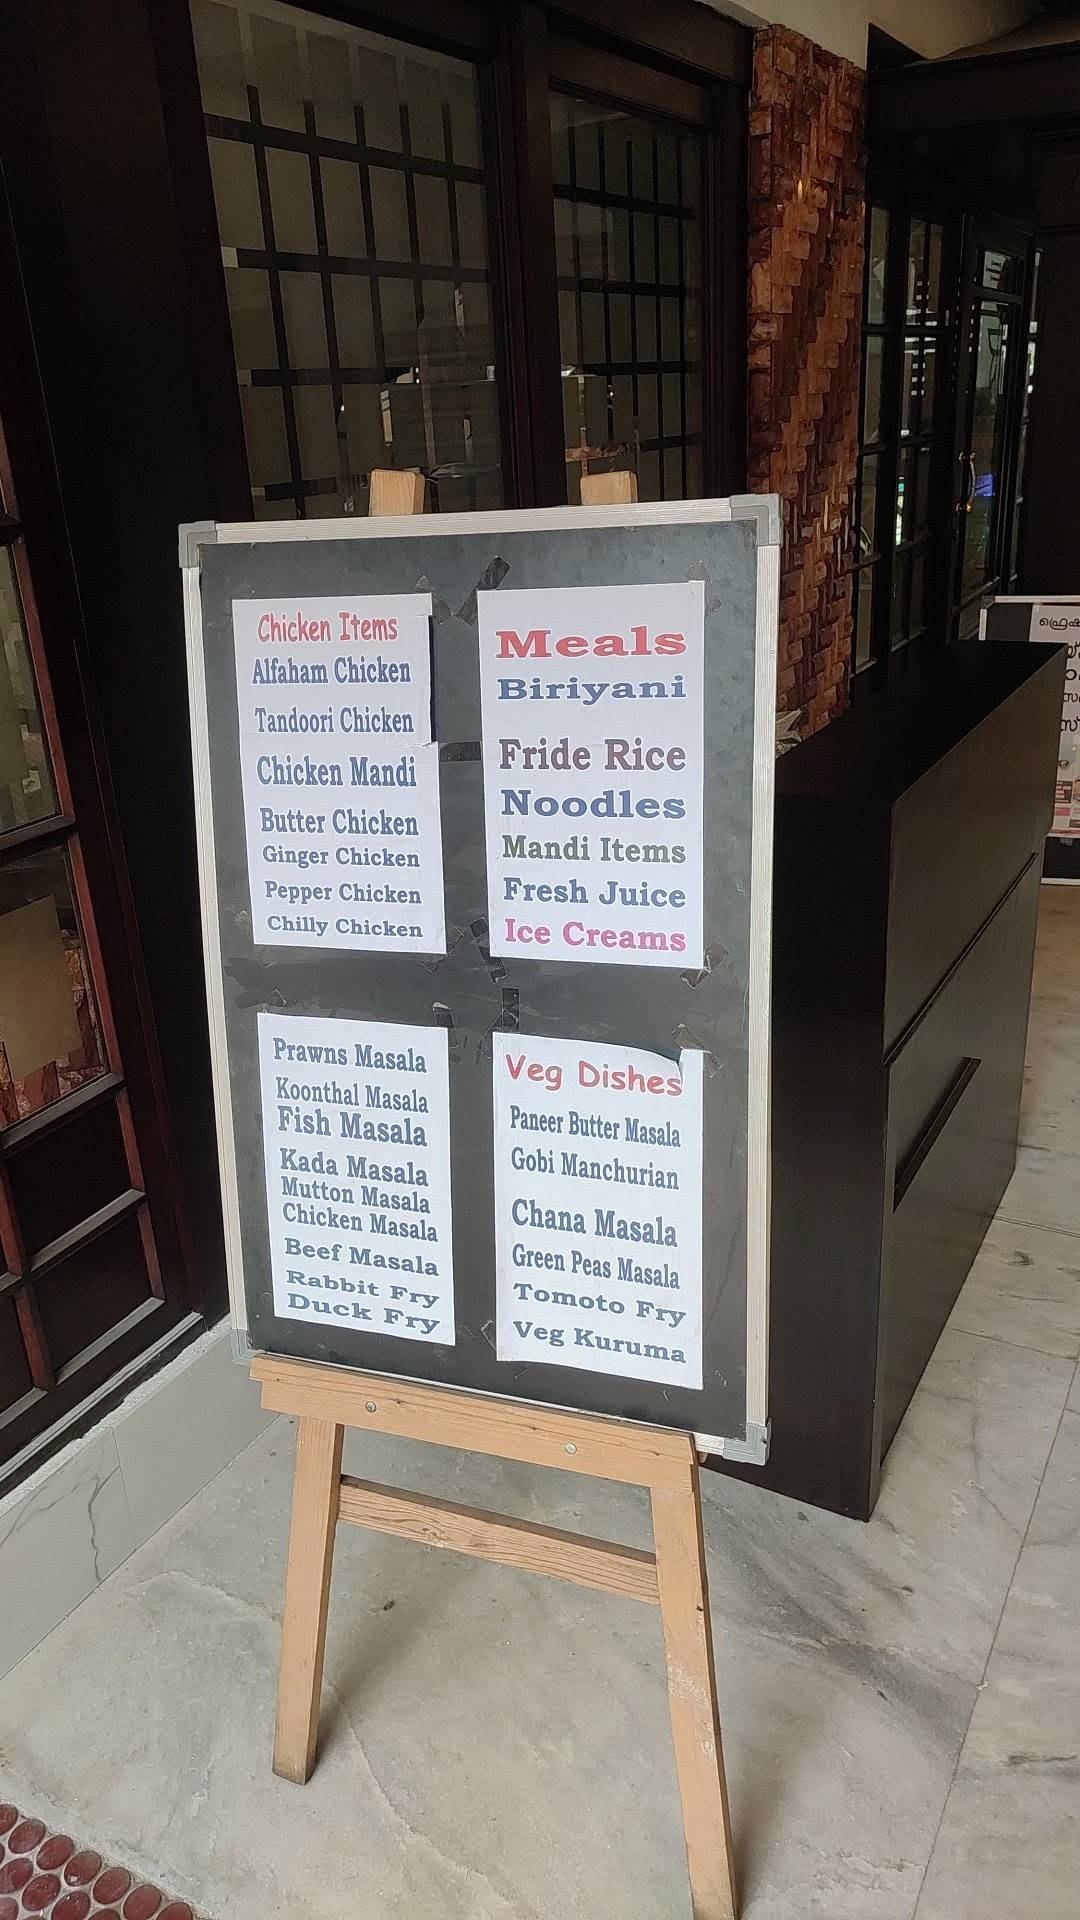 Chicken Items
Alfaham Chicken
Tandoori Chicken
Chicken Mandi
Butter Chicken
Ginger Chicken
Pepper Chicken
Chilly Chicken
Meals
Biriyani
Fride Rice
Noodles
Mandi Items
Fresh Juice
Ice Creams
Prawns Masala
Koonthal Masala
Fish Masala
Kada Masala
Mutton Masala
Chicken Masala
Beef Masala
Rabbit Fry
Duck Fry
Veg Dishes
Paneer Butter Masala
Gobi Manchurian
Chana Masala
Green Peas Masala
Tomoto Fry
Veg Kuruma